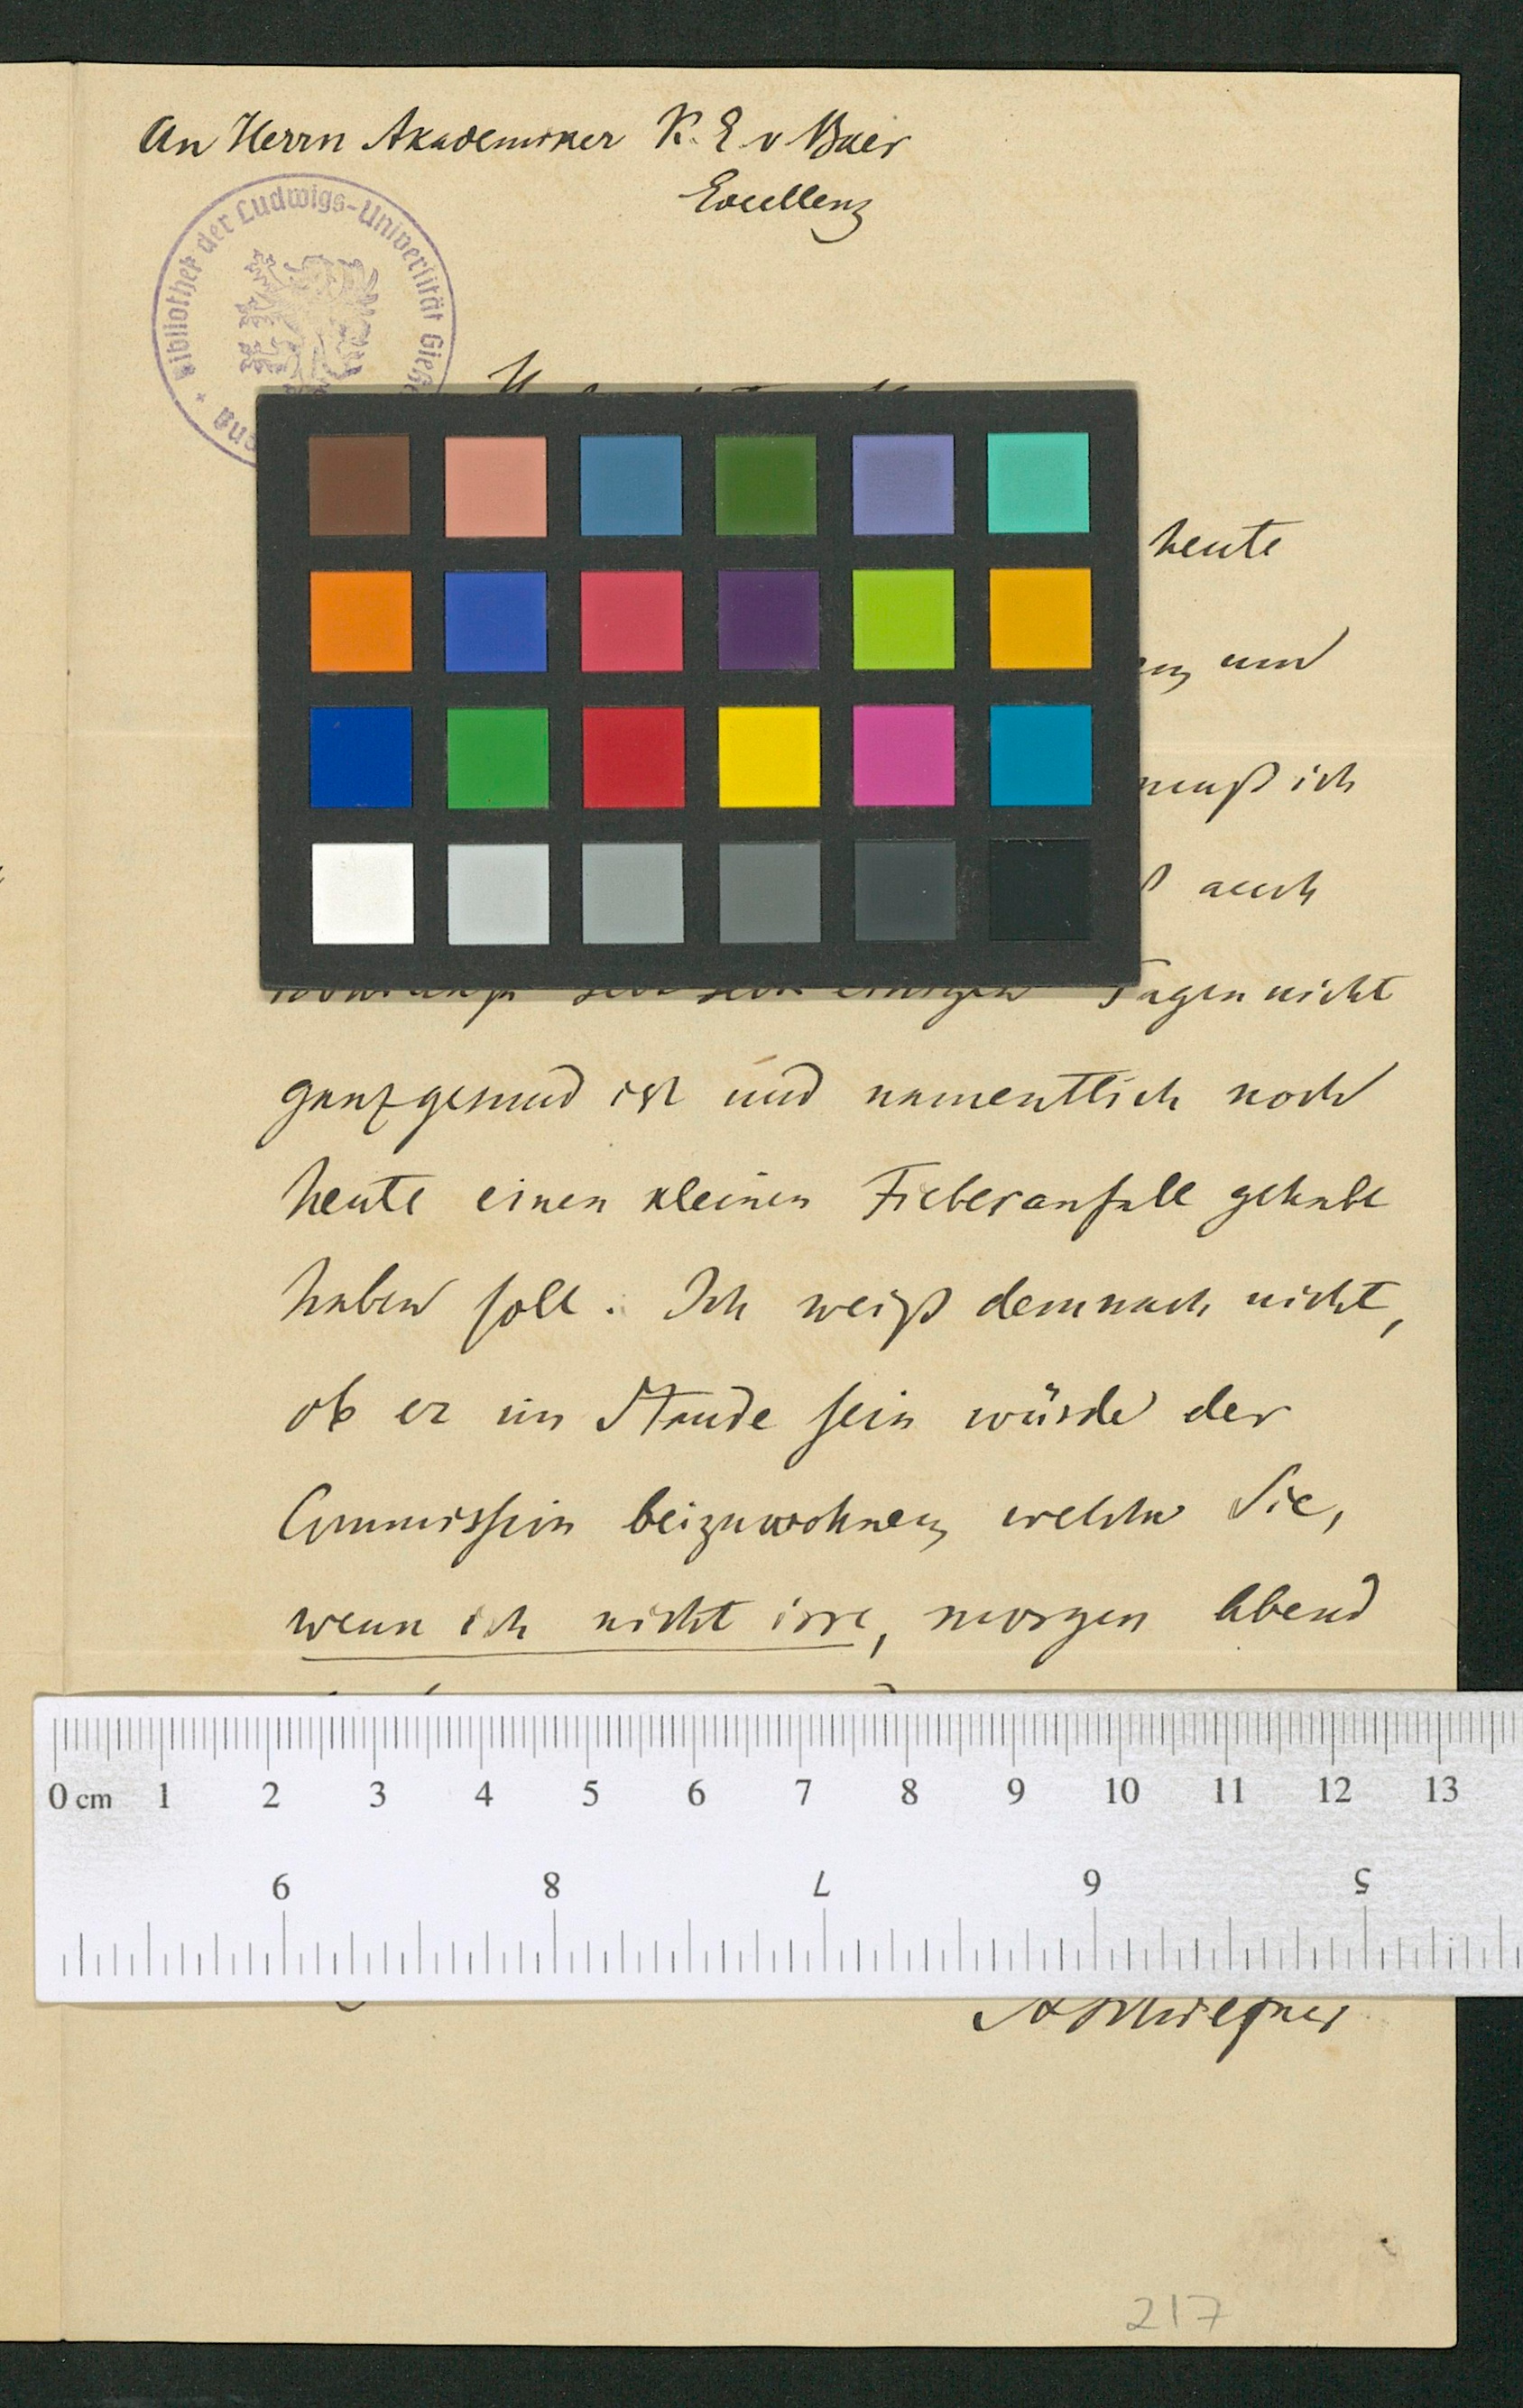 An Herrn Akademiker K. E v Baer
Excellenz
Bibliothek der Ludwigs-Universität Gieße
heute
und
muß ich
auch
einigen Tagen nicht
ganz gesund ist und namentlich noch
heute einen kleinen Fieberanfall gehabt
haben soll. Ich weiß demnach nicht,
ob er im Stande sein würde der
Commission beizuwohnen, welche Sie,
wenn ich nicht irre, morgen Abend
0 cm 1 2 3 4 5 6 7 8 9 10 11 12 13
9 8 7 6 5
A Schiefner
217